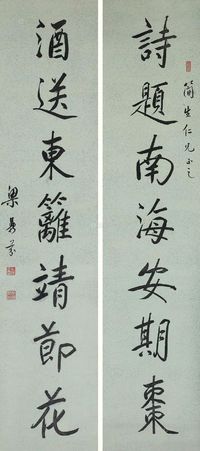 詩題南海安期棗
簡生仁兄正之
酒送東籬靖節花
梁